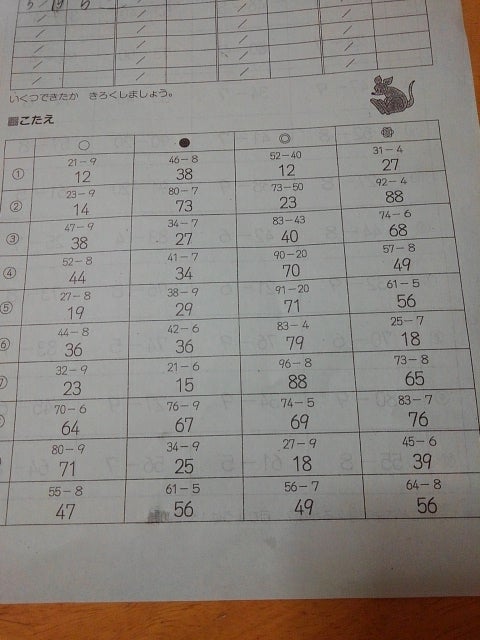 いくつできたか きろくしましょう。
■こたえ
○ ● ◎
① 21-9 46-8 52-40 31-4
12 38 12 27
② 23-9 80-7 73-50 92-4
14 73 23 88
③ 47-9 34-7 83-43 74-6
38 27 40 68
④ 52-8 41-7 90-20 57-8
44 34 70 49
⑤ 27-8 38-9 91-20 61-5
19 29 71 56
⑥ 44-8 42-6 83-4 25-7
36 36 79 18
32-9 21-6 96-8 73-8
23 15 88 65
70-6 76-9 74-5 83-7
64 67 69 76
80-9 34-9 27-9 45-6
71 25 18 39
55-8 61-5 56-7 64-8
47 56 49 56